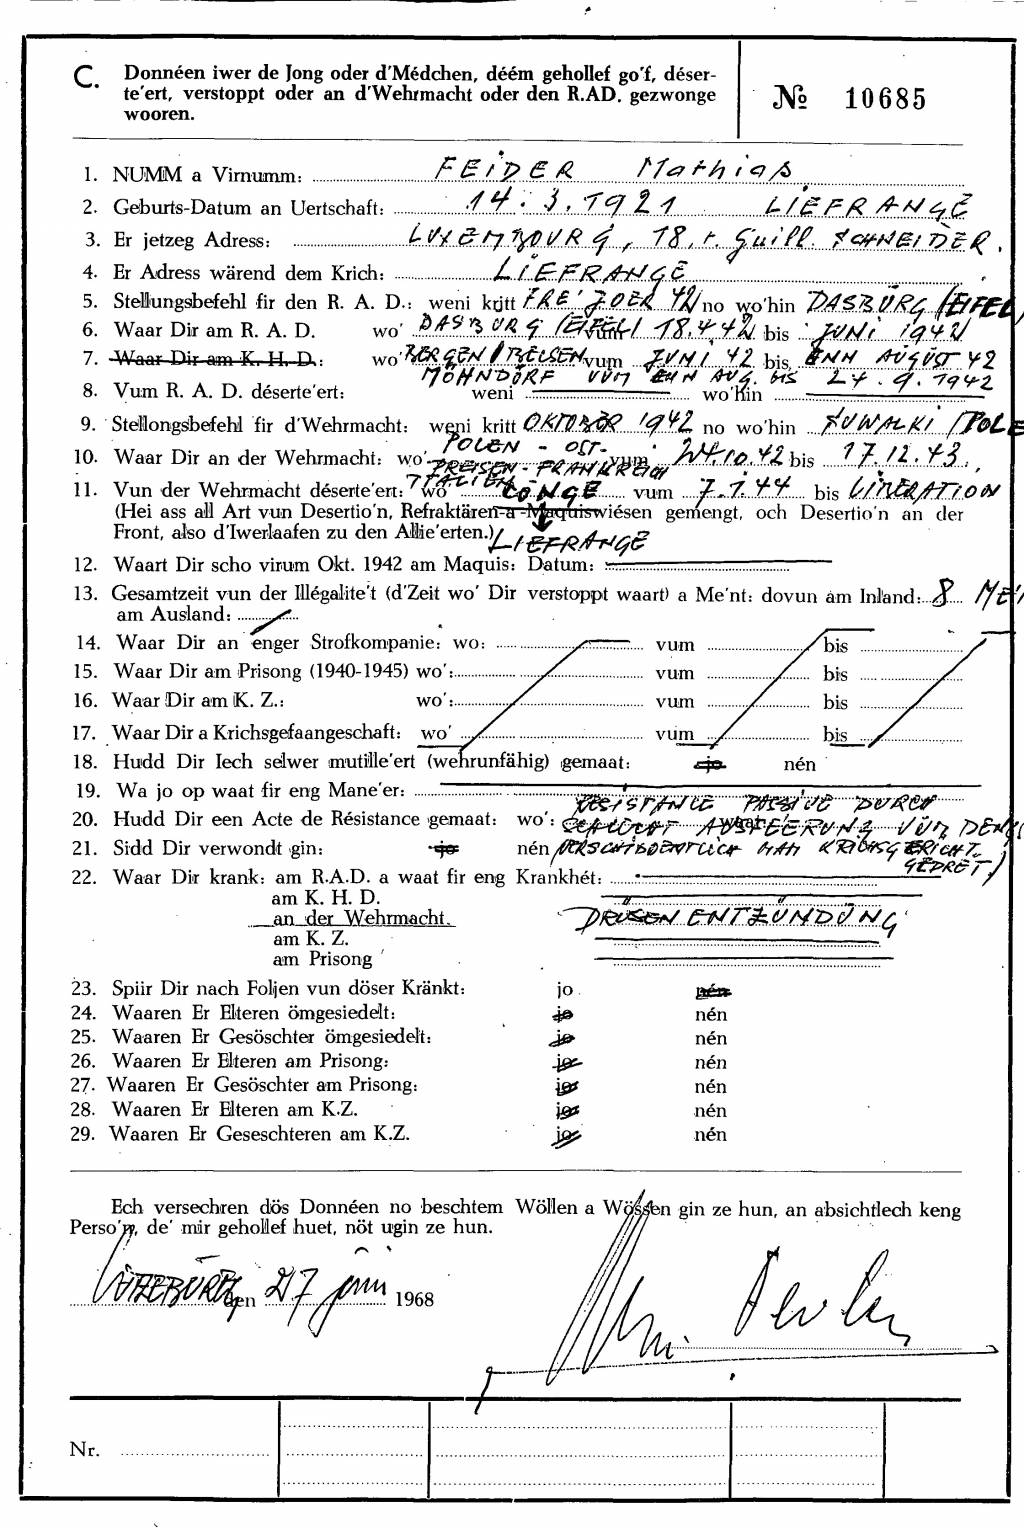 C. Donnéen iwer de Jong oder d'Médchen, déém gehollef go'f, déser-
te'ert, verstoppt oder an d'Wehrmacht oder den R.AD. gezwonge
wooren.
№ 10685
1. NUMM a Virnumm: FEIDER Mathias
2. Geburts-Datum an Uertschaft: 14.3.1921 LIEFRANGE
3. Er jetzeg Adress: LUXEMBOURG, 18, r. Guill. SCHNEIDER.
4. Er Adress wärend dem Krich: LIEFRANGE
5. Stellungsbefehl fir den R. A. D.: weni kritt FRE'JOER 42 no wo'hin DASBURG (EIFEL)
6. Waar Dir am R. A. D. wo' DASBURG (EIFEL) vum 18.4.42 bis JUNI 1942
7. Waar Dir am K. H. D.: wo' BERGEN/BELSEN vum JUNI 42 bis ENN AUGUST 42
MÖHNDORF VUM ENN AUG. BIS 24.9.1942
8. Vum R. A. D. déserte'ert: weni wo'hin
9. Stellongsbefehl fir d'Wehrmacht: weni kritt OKTOBER 1942 no wo'hin SUWALKI (POLE
POLEN - OST-
10. Waar Dir an der Wehrmacht: wo' PREISEN - FRANKREICH vum 24.10.42 bis 17.12.43.
ITALIEN
11. Vun der Wehrmacht déserte'ert: wo' LONGE vum 7.1.44 bis LIBERATION
(Hei ass all Art vun Desertio'n, Refraktären a Maquiswiésen gemengt, och Desertio'n an der
Front, also d'Iwerlaafen zu den Allie'erten.) LIEFRANGE
12. Waart Dir scho virum Okt. 1942 am Maquis: Datum:
13. Gesamtzeit vun der Illégalite't (d'Zeit wo' Dir verstoppt waart) a Me'nt: dovun am Inland: 8 ME'
am Ausland:
14. Waar Dir an enger Strofkompanie: wo: vum bis
15. Waar Dir am Prisong (1940-1945) wo': vum bis
16. Waar Dir am K. Z.: wo': vum bis
17. Waar Dir a Krichsgefaangeschaft: wo' vum bis
18. Hudd Dir Iech selwer mutille'ert (wehrunfähig) gemaat: jo nén
19. Wa jo op waat fir eng Mane'er:
RESISTANCE PASSIVE DURCH
20. Hudd Dir een Acte de Résistance gemaat: wo': SCHLECHT AUSFEERUNG VUM DENS
21. Sidd Dir verwondt gin: jo nén (VERSCHIDDENTLICH MAM KRICHSGERICHT
GEDRET)
22. Waar Dir krank: am R.A.D. a waat fir eng Krankhét:
am K. H. D.
an der Wehrmacht DRÜSENENTZÜNDUNG
am K. Z.
am Prisong
23. Spiir Dir nach Foljen vun döser Kränkt: jo nén
24. Waaren Er Elteren ömgesiedelt: jo nén
25. Waaren Er Gesöschter ömgesiedelt: jo nén
26. Waaren Er Elteren am Prisong: jo nén
27. Waaren Er Gesöschter am Prisong: jo nén
28. Waaren Er Elteren am K.Z. jo nén
29. Waaren Er Geseschteren am K.Z. jo nén
Ech versechren dös Donnéen no beschtem Wöllen a Wössen gin ze hun, an absichtlech keng
Perso'n, de' mir gehollef huet, nöt ugin ze hun.
LËTZEBURG den 27 juni 1968
Nr.